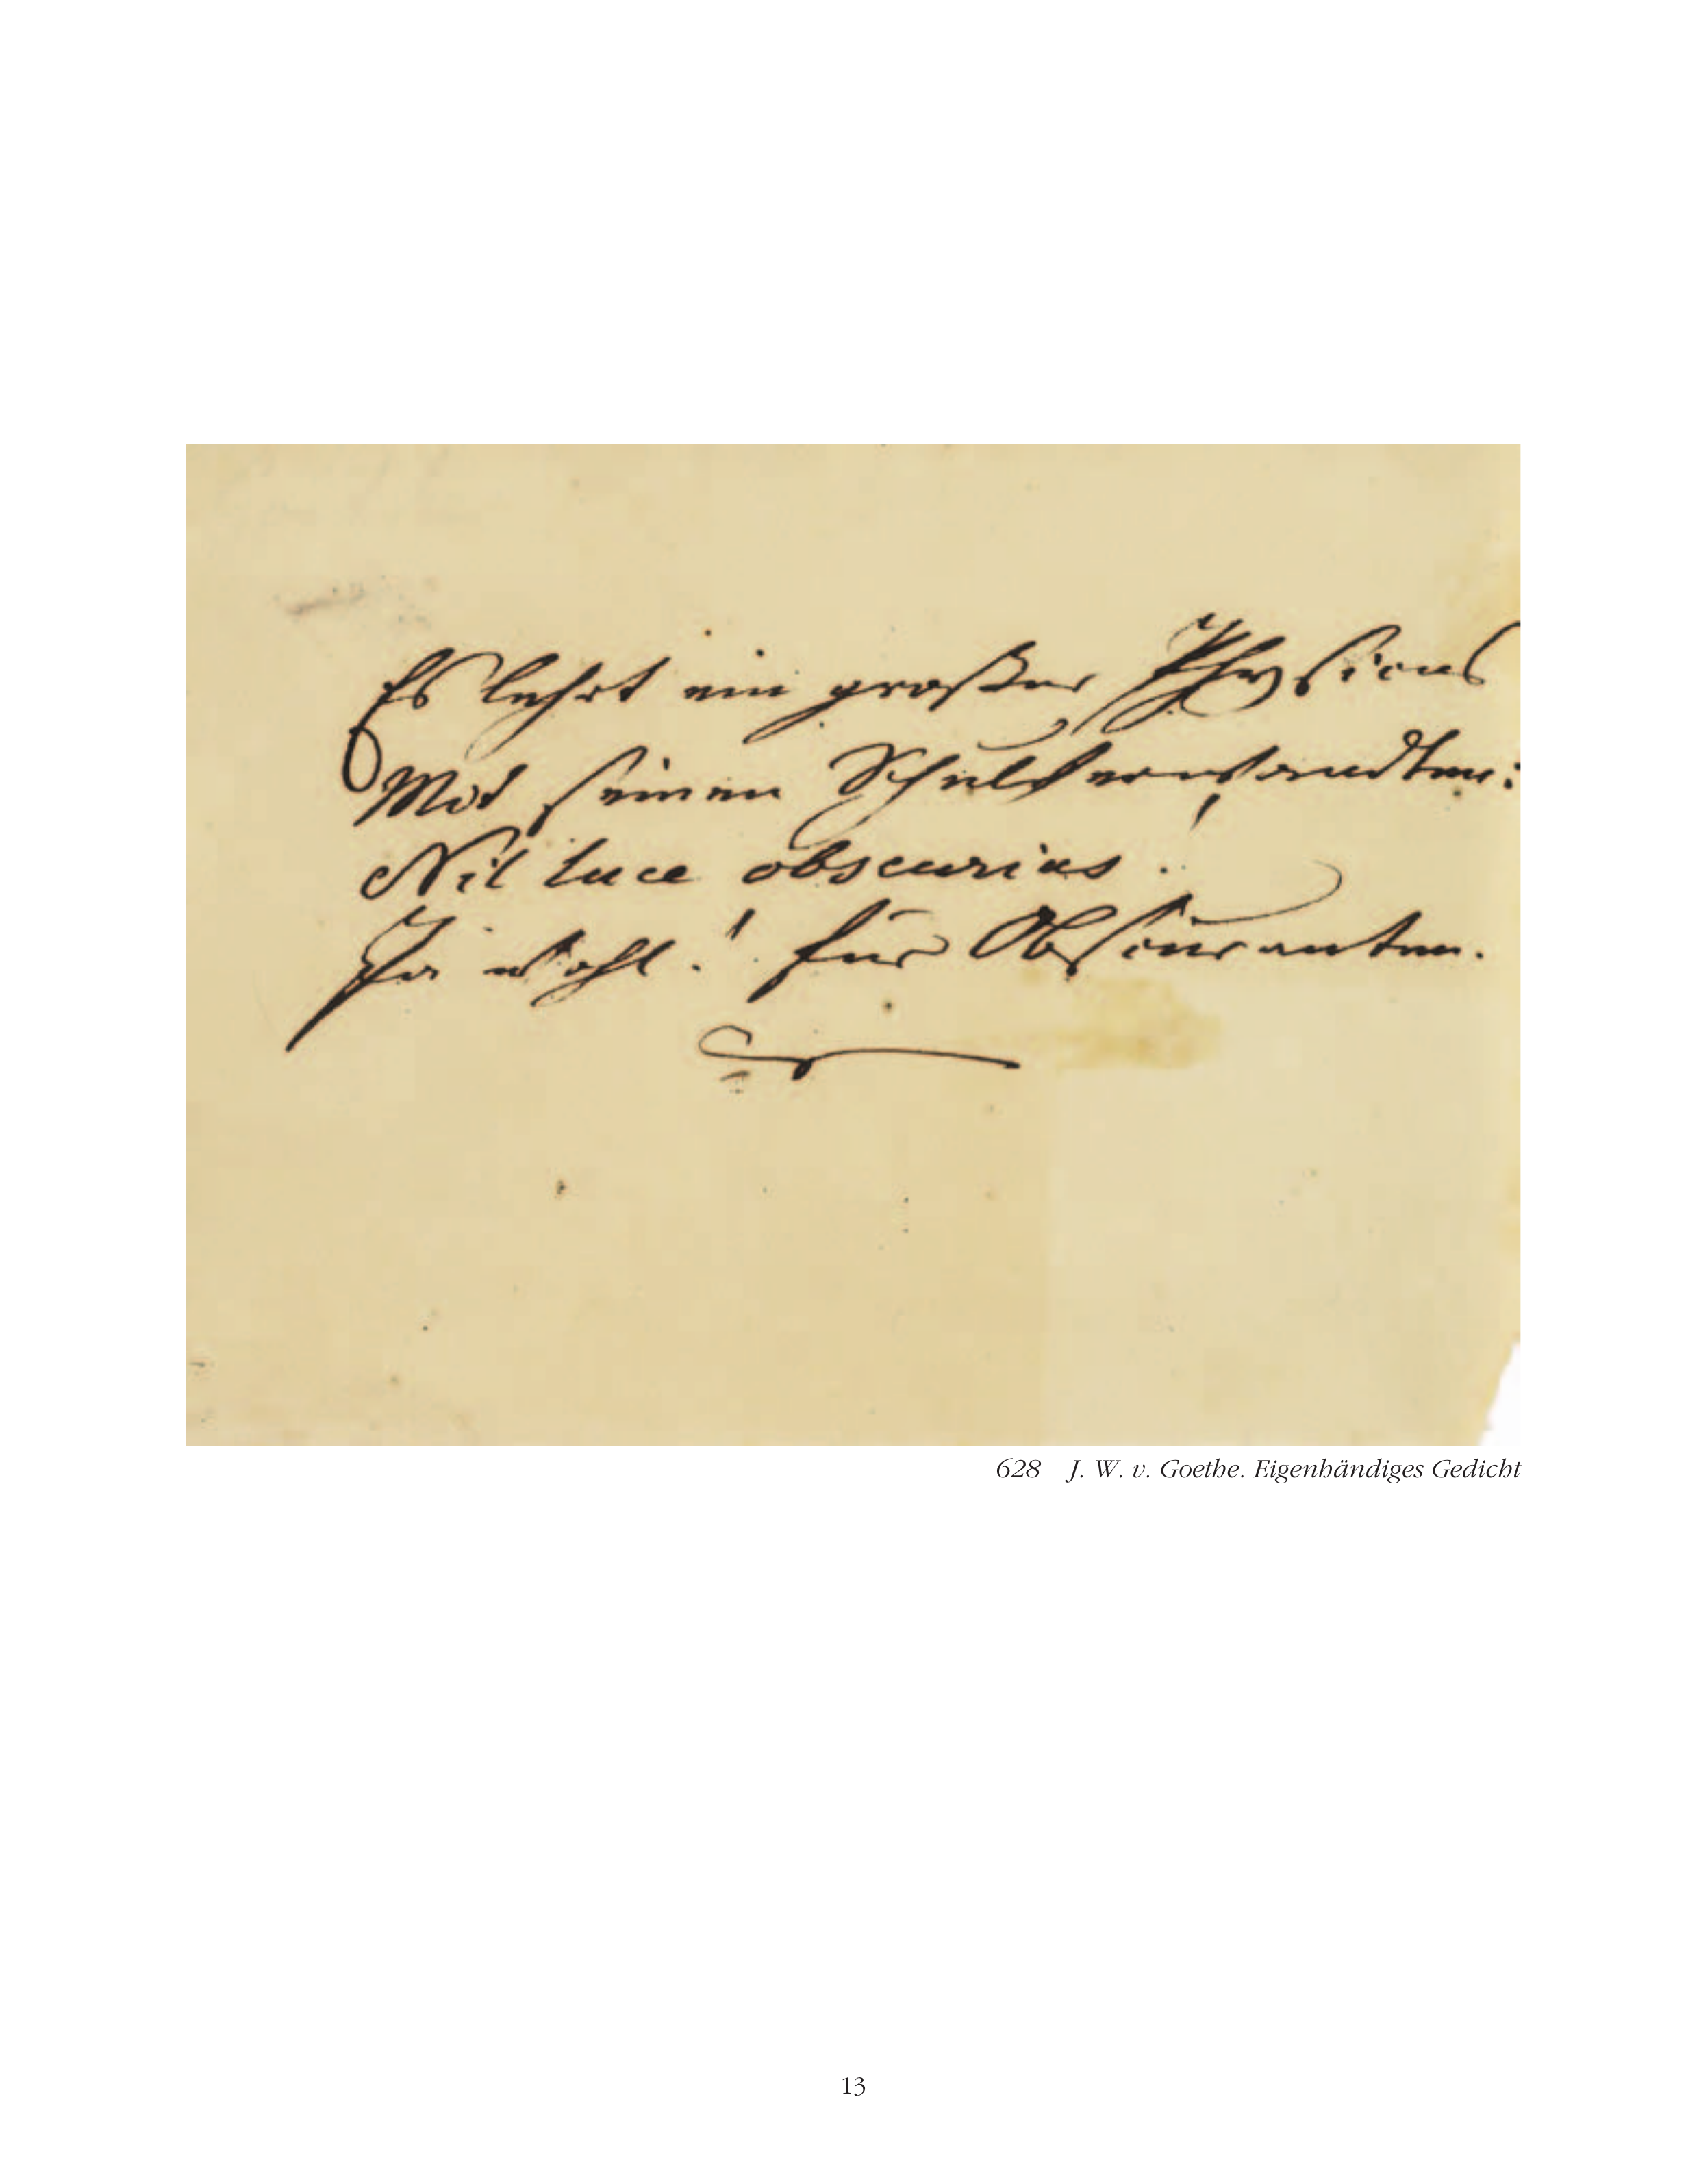 Es lehrt ein großer Physicus
Mit seinen Schulverwandten:
Nil luce obscurius!
Ja wohl! für Obscuranten.
628 J. W. v. Goethe. Eigenhändiges Gedicht
13